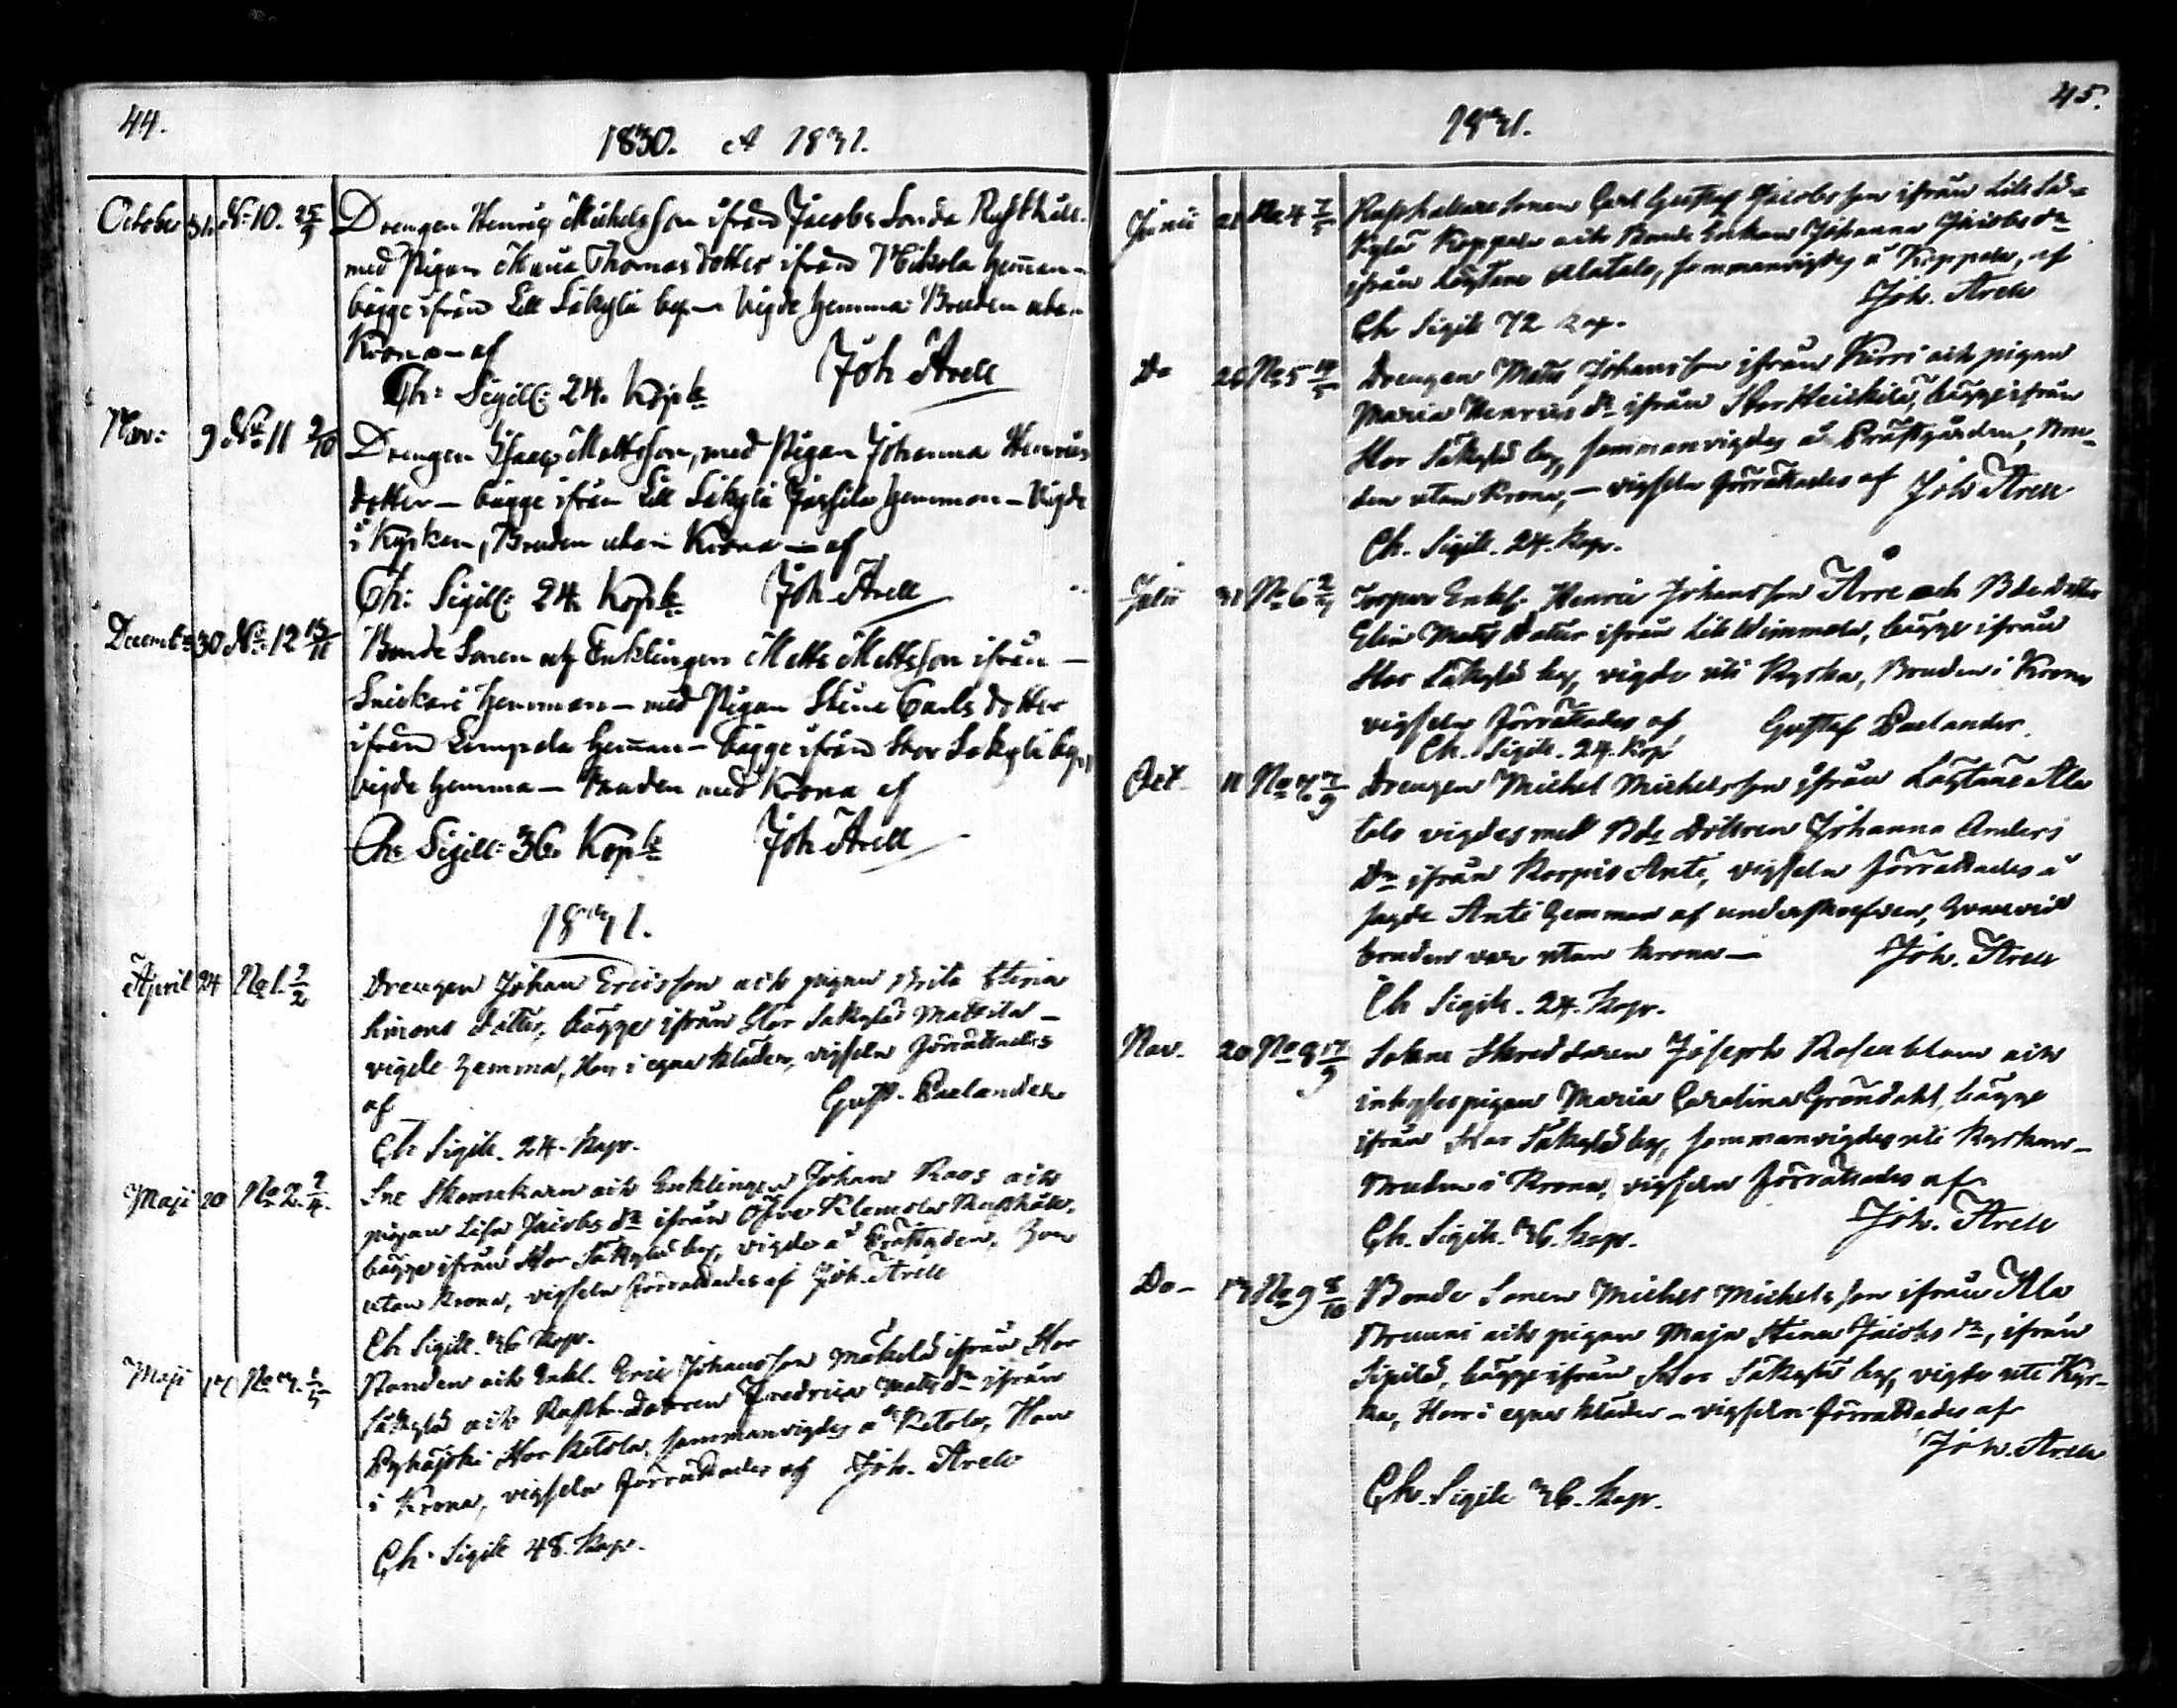 44.
1830. et 1831.
October 31. No 10. 25/9 Drengen Henric Michelsson ifrån Jacobs Londa Rusthåll
med Pigan Maria Thomas dotter ifrån Mikola hemman
bägge ifrån Lill Säkylä by — Vigde hemma Bruden utan
Krona — af
Ch: Sigill: 24. Kopk Joh Arell
Nov: 9 No 11 2/10 Drengen Isaac Mattsson, med Pigan Johanna Henrics
dotter — bägge ifrån Lill Säkylä hemman — Vigde
i Kyrkan, Bruden utan Krona — af
Ch: Sigill: 24. Kopk Joh Arell
Decemb: 30 No 12 15/11 Bonde Sonen Enklingen Matts Mattsson ifrån —
Snickari hemman — med Pigan Stina Carls dotter
ifrån Lempola hemman — bägge ifrån Stor Säkylä by,
vigde hemma — Bruden med Krona af
Ch: Sigill: 36. Kopk Joh Arell
1831.
April 24 No 1. 2/2 Drengen Johan Ericsson och pigan Brita Stina
Simons dotter, bägge ifrån Stor Säkylä Mattila —
vigde hemma, Hon i egna kläder, vigseln förrättades
af Gust. Paelander
Ch Sigill. 24. kop.
Maji 20 No 2. 2/4. Skomakaren och Enklingen Johan Roos och
pigan Lisa Jacobs dr ifrån Öfre Klemola Rusthåll,
bägge ifrån Stor Säkylä by, vigde å Prästgården, Hon
utan Krona, vigseln förrättades af Joh. Arell
Ch Sigill. 36 kop.
Maji No 3. Bonden och Enkl. Eric Johansson Mäkelä ifrån Stor
Säkylä och Rusth. dottren Fredrica Mats dr ifrån
Pyhäjoki Stor Ketola, sammanvigdes å Ketola, Hon
i Krona, vigseln förrättades af Joh. Arell
Ch. Sigill 48. kop.
45.
1831.
Junii 21 No 4 Rusthållare Sonen Carl Gustaf Jacobsson ifrån Lill Sä-
kylä Koppala och Bonde Enkan Johanna Jacobs dr
ifrån Löytäne Alatalo, sammanvigdes å Koppala, af
Joh. Arell
Ch Sigill 72 kop.
Do 26 No 5 Drengen Mats Johansson ifrån Kirri och pigan
Maria Henrics dr ifrån Stor Heickilä, bägge ifrån
Stor Säkylä by, sammanvigdes å Prästgården, Bru-
den utan Krona, — vigseln förrättades af Joh Arell
Ch. Sigill. 24. kop.
Julii 31 No 6 Enkl. Henric Johansson och Bde dotter
Elin Mats dotter ifrån Lill Wimmala, bägge ifrån
Stor Säkylä by, vigde uti Kyrka, Bruden i Krona
vigseln förrättades af Gustaf Paelander.
Ch. Sigill. 24. kop
Oct. 11 No 7 Drengen Michel Michelsson ifrån Löytäne Ala
talo vigdes med Bde dottren Johanna Anders
Dr ifrån Korpis Anti, vigseln förrättades å
sagde Anti hemman af underskrefven, hvarvid
bruden var utan krona — Joh. Arell
Ch Sigill. 24. kop.
Nov. 20 No 8 Sokne Skreddaren Joseph Rosenblom och
inhyses pigan Maria Carolina Gröndahl, bägge
ifrån Stor Säkylä by, sammanvigdes uti Kyrkan —
Bruden i Krona, vigseln förrättades af
Joh. Arell
Ch. Sigill. 36. kop.
Do — No 9 8/10 Bonde Sonen Michel Michelsson ifrån Ala
Bruuni och pigan Maja Stina Jacobs dr, ifrån
Sipilä, bägge ifrån Stor Säkylä by, vigde uti Kyr-
ka, Hon i egna kläder — vigseln förrättades af
Joh. Arell
Ch. Sigill 36. kop.